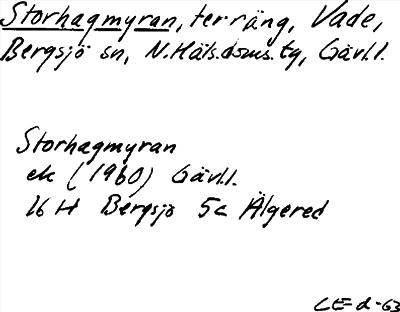 Storhagmyran, terräng, Vade,
Bergsjö sn, N.Häls.doms.tg, Gävl.l.
Storhagmyran
ek (1960) Gävl.l.
16 H Bergsjö 5c Älgered
CE=d-63